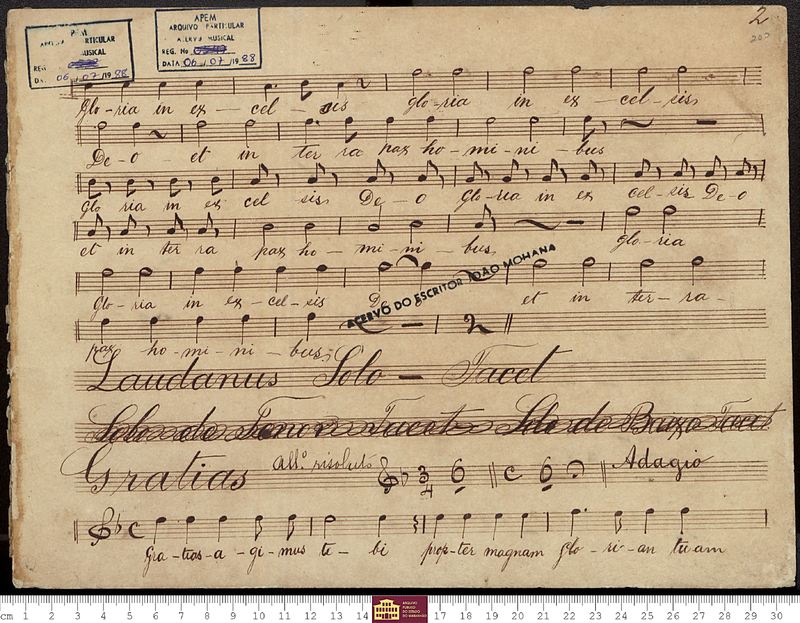 2
200
APEM
ARQUIVO PARTICULAR
ACERVO MUSICAL
REG. No
DATA 06/07/1988
APEM
ARQUIVO PARTICULAR
ACERVO MUSICAL
REG. No
DATA 06/07/1988
Glo-ria in ex-cel-sis glo-ria in ex-cel-sis
De-o et in ter ra pax ho-mi-ni-bus
Glo ria in ex cel sis De-o Glo-ria in ex cel-sis De-o
et in ter ra pax ho-mi-ni-bus glo-ria
Glo-ria in ex-cel-sis De et in ter-ra-
ACERVO DO ESCRITOR JOAO MOHANA
pax ho-mi-ni-bus
2
Laudanus Solo - Tacet
Solo do Tenor Tacet Solo do Baixo Tacet
Gratias All.º risoluto 3/4 6 C 6 Adagio
C
Gra-tias-a-gi-mus ti-bi prop-ter magnam glo-ri-an tuam
cm 1 2 3 4 5 6 7 8 9 10 11 12 13 14 17 18 19 20 21 22 23 24 25 26 27 28 29 30
ARQUIVO
PÚBLICO
DO ESTADO
DO MARANHÃO